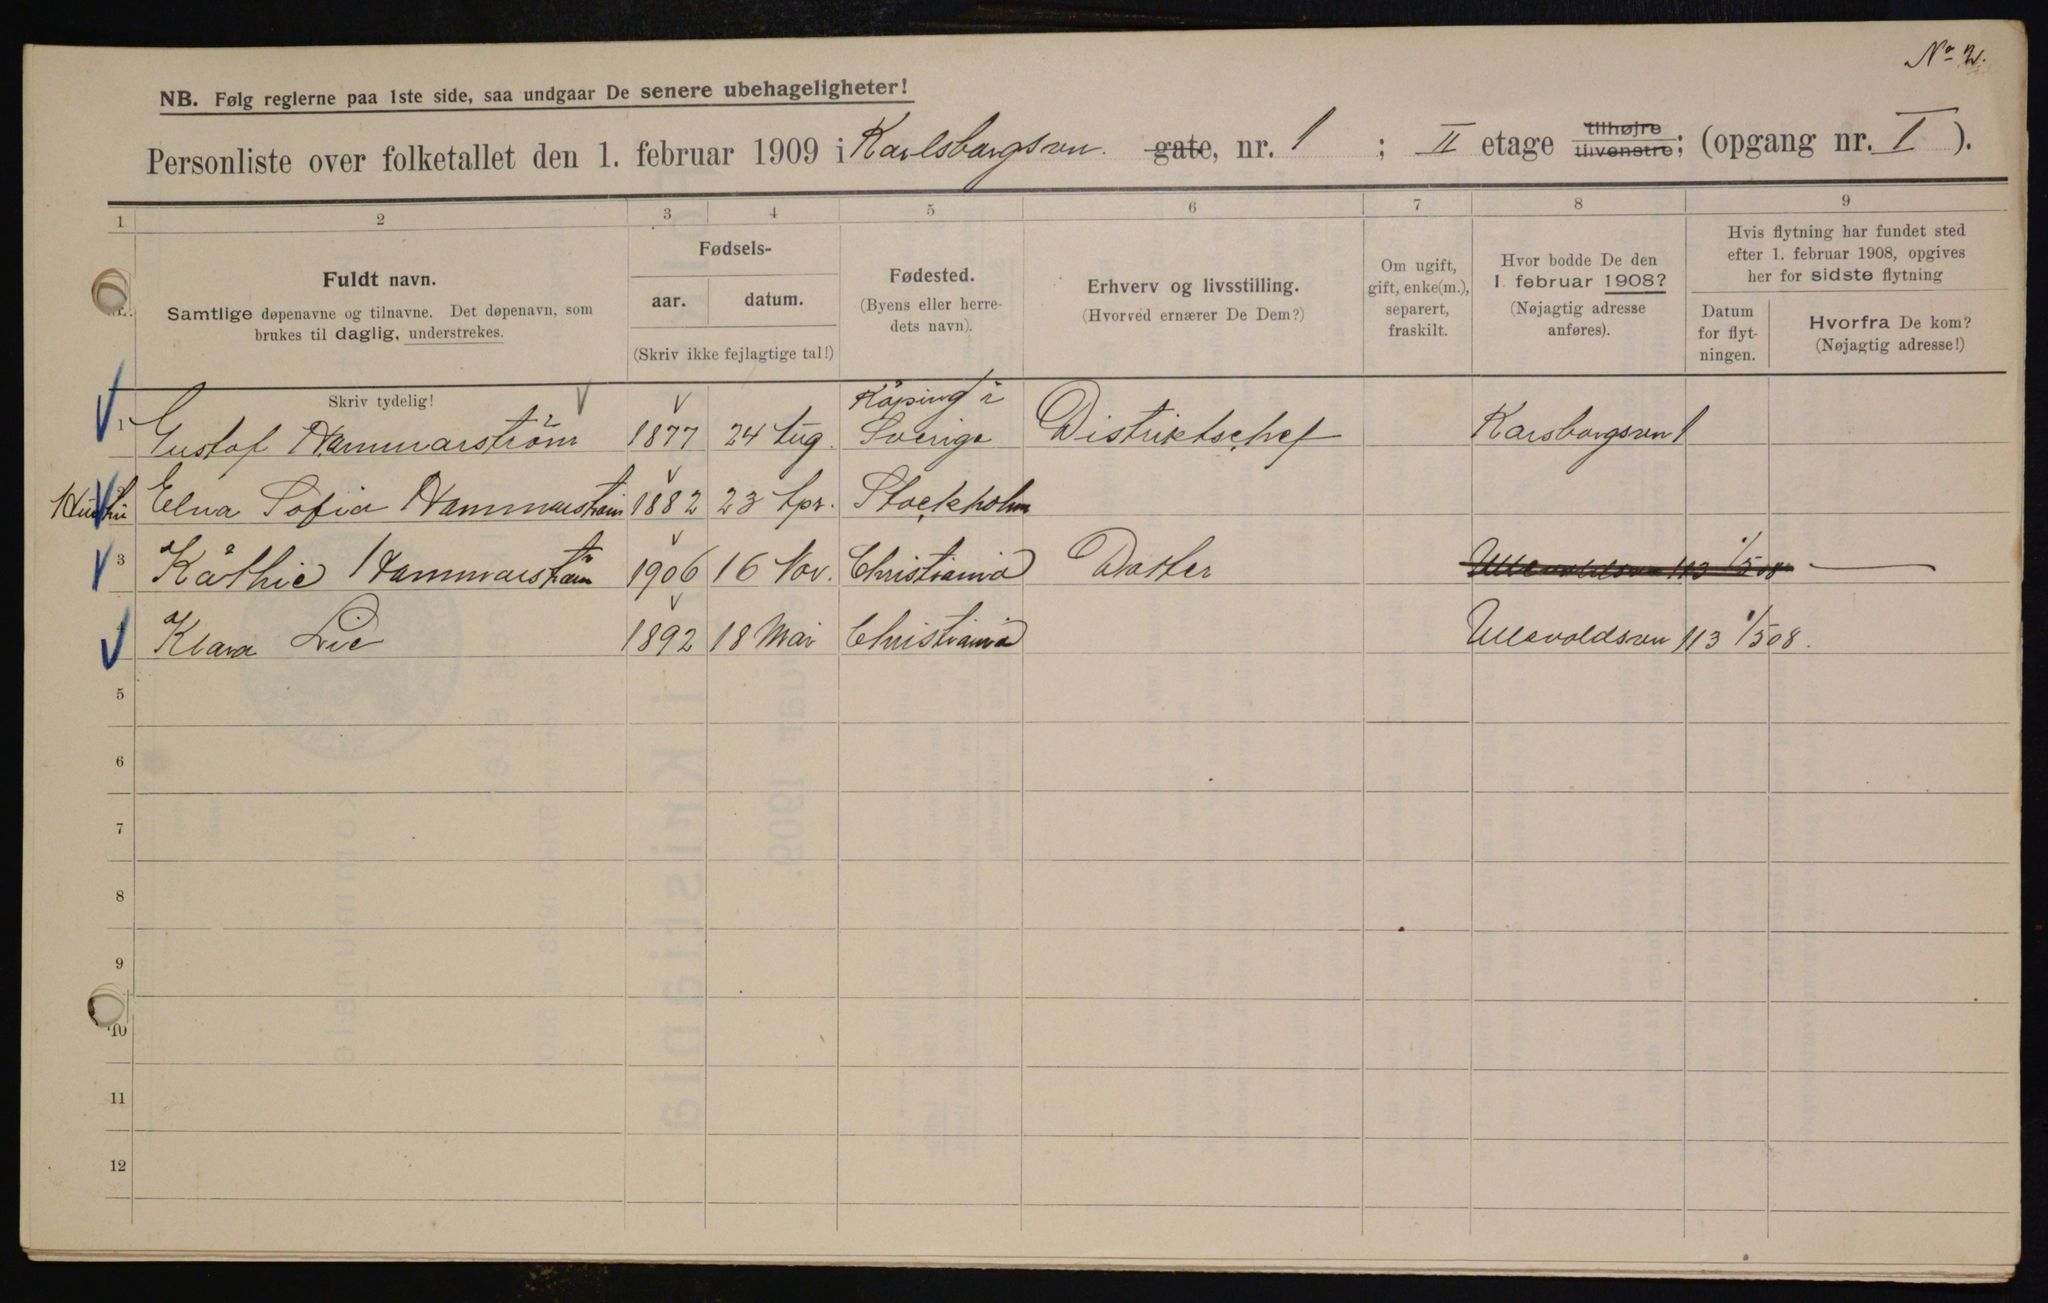 No 2.
NB. Følg reglerne paa 1ste side, saa undgaar De senere ubehageligheter!
Personliste over folketallet den 1. februar 1909 i Karlsborgsvn. gate, nr. 1 ; II etage tilhøjre tilvenstre; (opgang nr. I ).
1 2 3 4 5 6 7 8 9
Fuldt navn.
Samtlige døpenavne og tilnavne. Det døpenavn, som
brukes til daglig, understrekes.
Skriv tydelig!
Fødsels-
aar. datum.
(Skriv ikke fejlagtige tal!)
Fødested.
(Byens eller herre-
dets navn).
Erhverv og livsstilling.
(Hvorved ernærer De Dem?)
Om ugift,
gift, enke(m.),
separert,
fraskilt.
Hvor bodde De den
1 februar 1908?
(Nøjagtig adresse
anføres).
Hvis flytning har fundet sted
efter 1. februar 1908, opgives
her for sidste flytning
Datum
for flyt-
ningen.
Hvorfra De kom?
(Nøjagtig adresse!)
1 Gustaf Hammarström 1877 24 Aug. Köping i Sverige Distriktschef Karsborgsvn 1
Elna Sofia Hammarström 1882 23 Apr. Stockholm
3 Käthie Hammarström 1906 16 Nov. Christiania Datter Ullevoldsvn 113 1/5 08
Klara Lie 1892 18 Mai Christiania Ullevoldsvn 113 1/5 08.
5
6
7
8
9
10
11
12